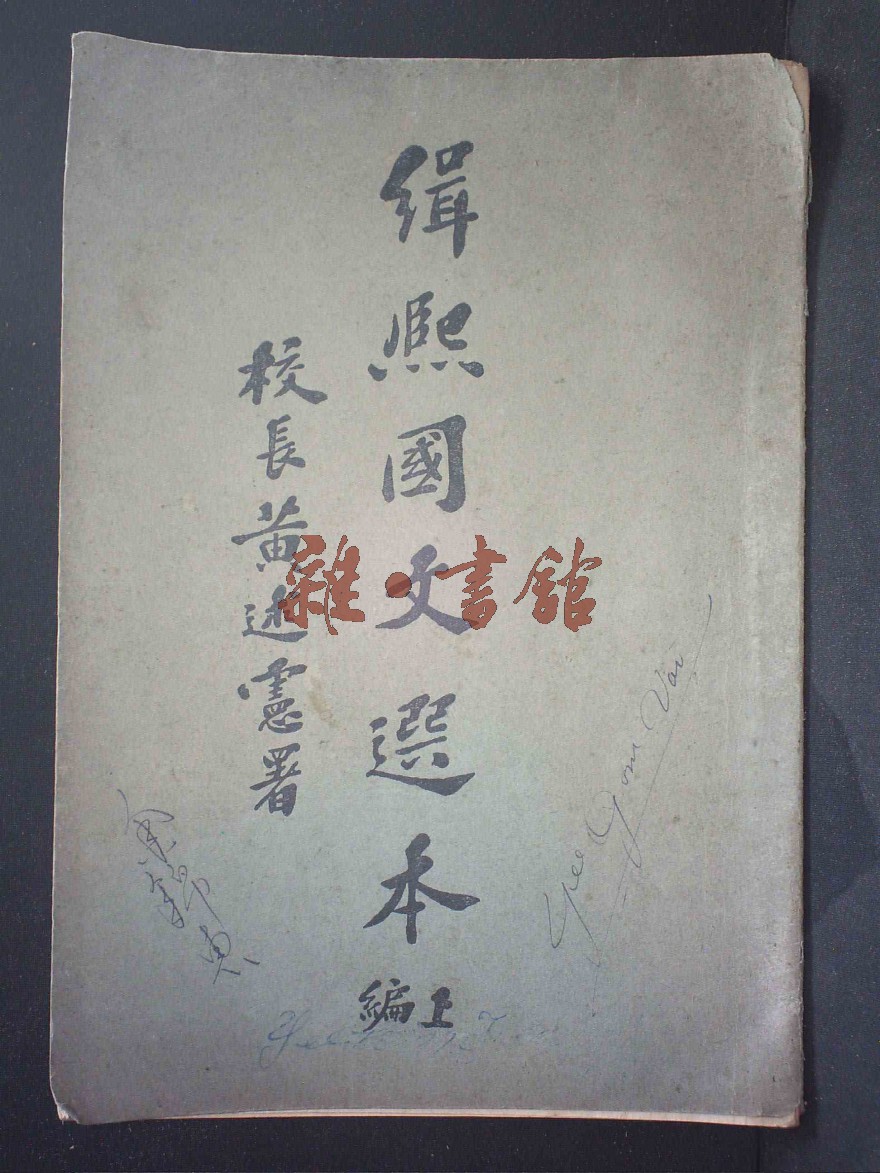 緝熙國文選本
上編
校長黃遜憲署
雜·書舘
Yee Yom Vai